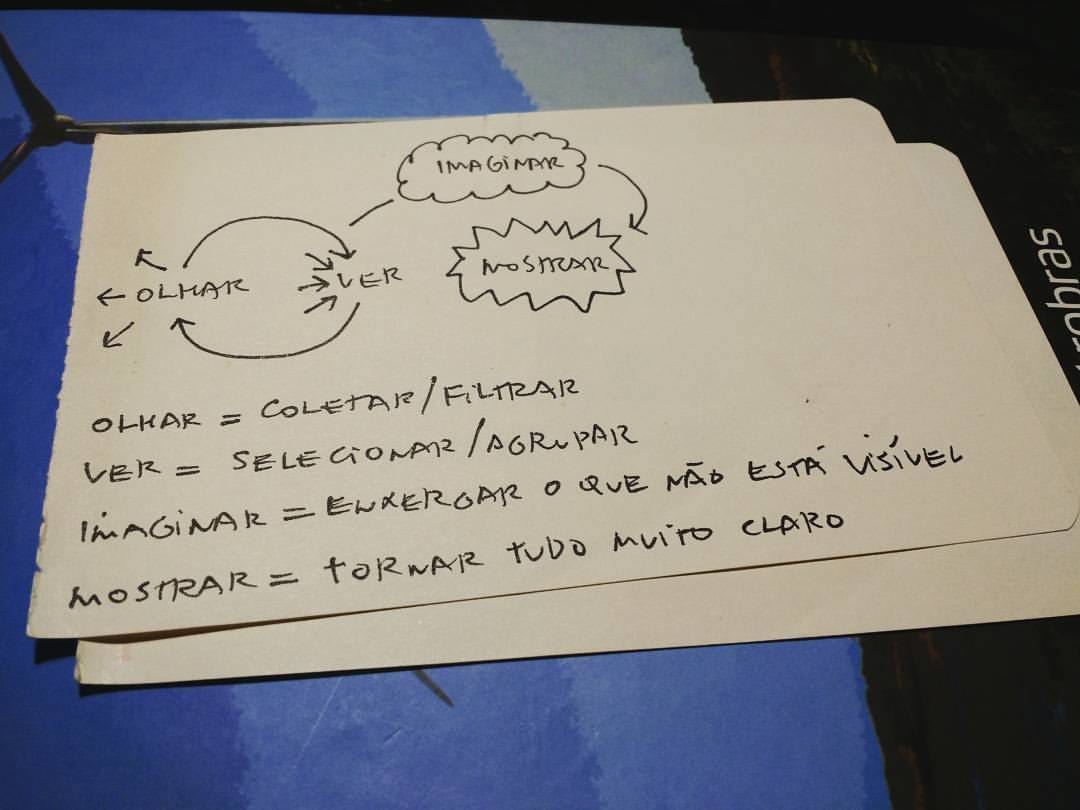 IMAGINAR
MOSTRAR
OLHAR
VER
OLHAR = COLETAR/FILTRAR
VER = SELECIONAR/AGRUPAR
IMAGINAR = ENXERGAR O QUE NÃO ESTÁ VISÍVEL
MOSTRAR = TORNAR TUDO MUITO CLARO